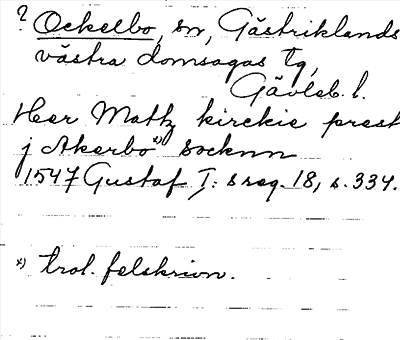 ? Ockelbo, sn, Gästriklands
västra domsagas tg,
Gävleb. l.
Her Mattz kirckie prest
j Akerbo x) Socknn
1547 Gustaf I: s reg. 18, s. 334.
x) trol. felskrivn.